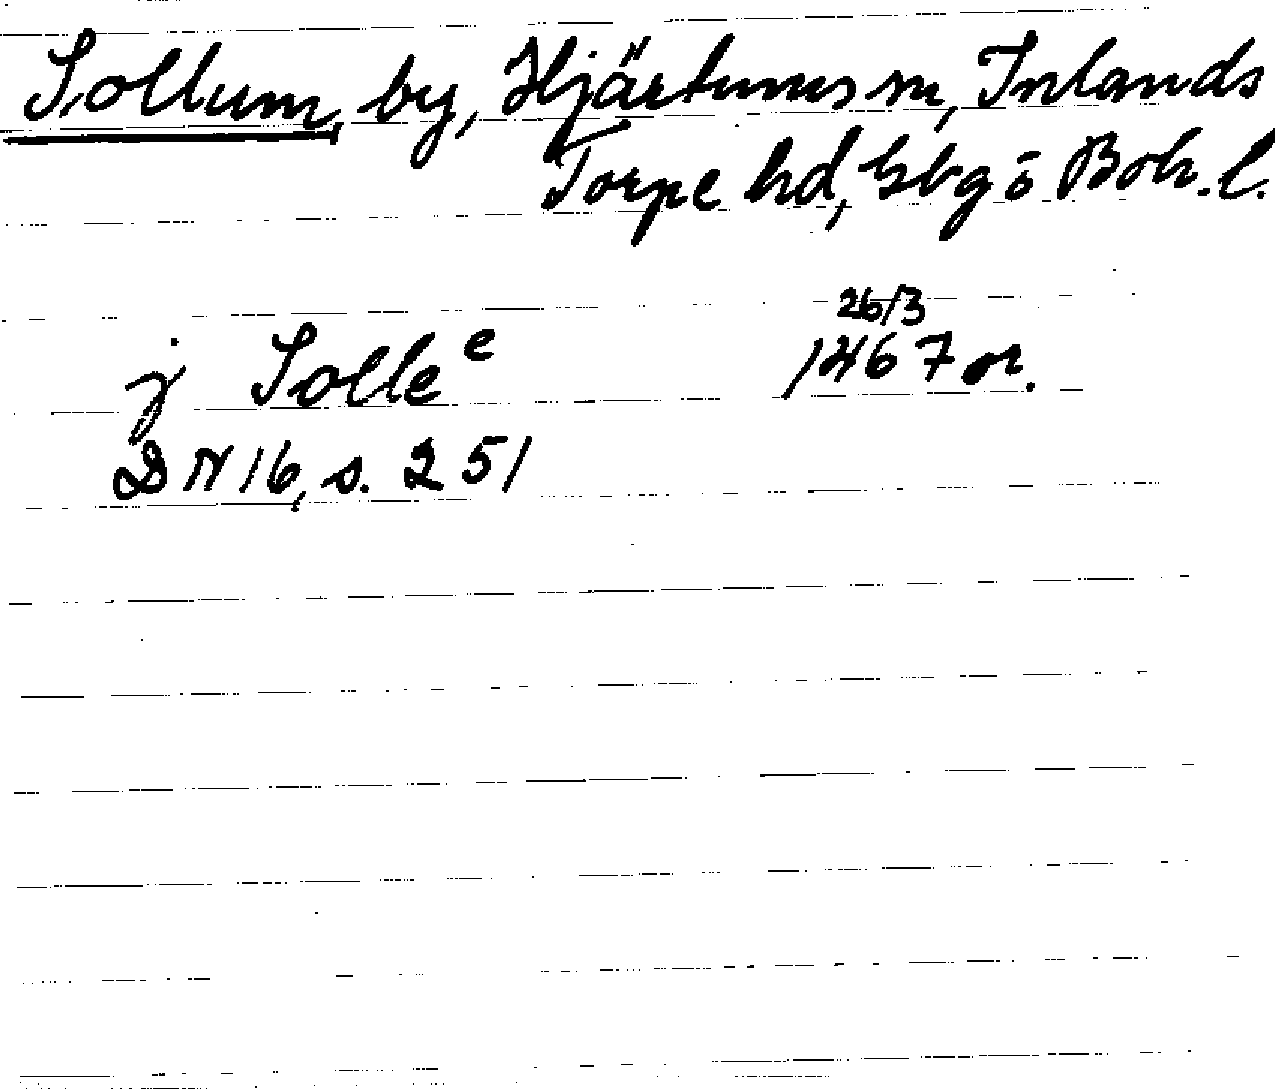 Sollum, by, Hjärtums sn, Inlands
Torpe hd, Gbg o Boh. l.
26/3
j Solle e 1467 or.
DN 16, s. 251